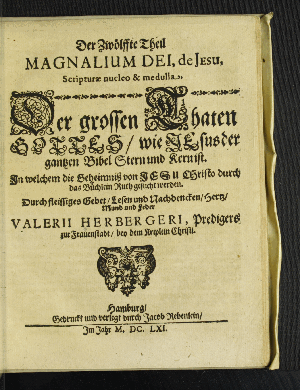 Der Zwölffte Theil
MAGNALIUM DEI, de Jesu,
Scripturæ nucleo & medulla.
Der grossen Thaten
GOTTES / wie JEsus der
gantzen Bibel Stern und Kern ist.
In welchem die Geheimniß von JESU Christo durch
das Büchlein Ruth gesucht werden.
Durch fleissiges Gebet / Lesen und Nachdencken / Hertz /
Mund und Feder
VALERII HERBERGERI, Predigers
zur Frauenstadt / bey dem Kriplein Christi.
Hamburg /
Gedruckt und verlegt durch Jacob Rebenlein /
Im Jahr M. DC. LXI.